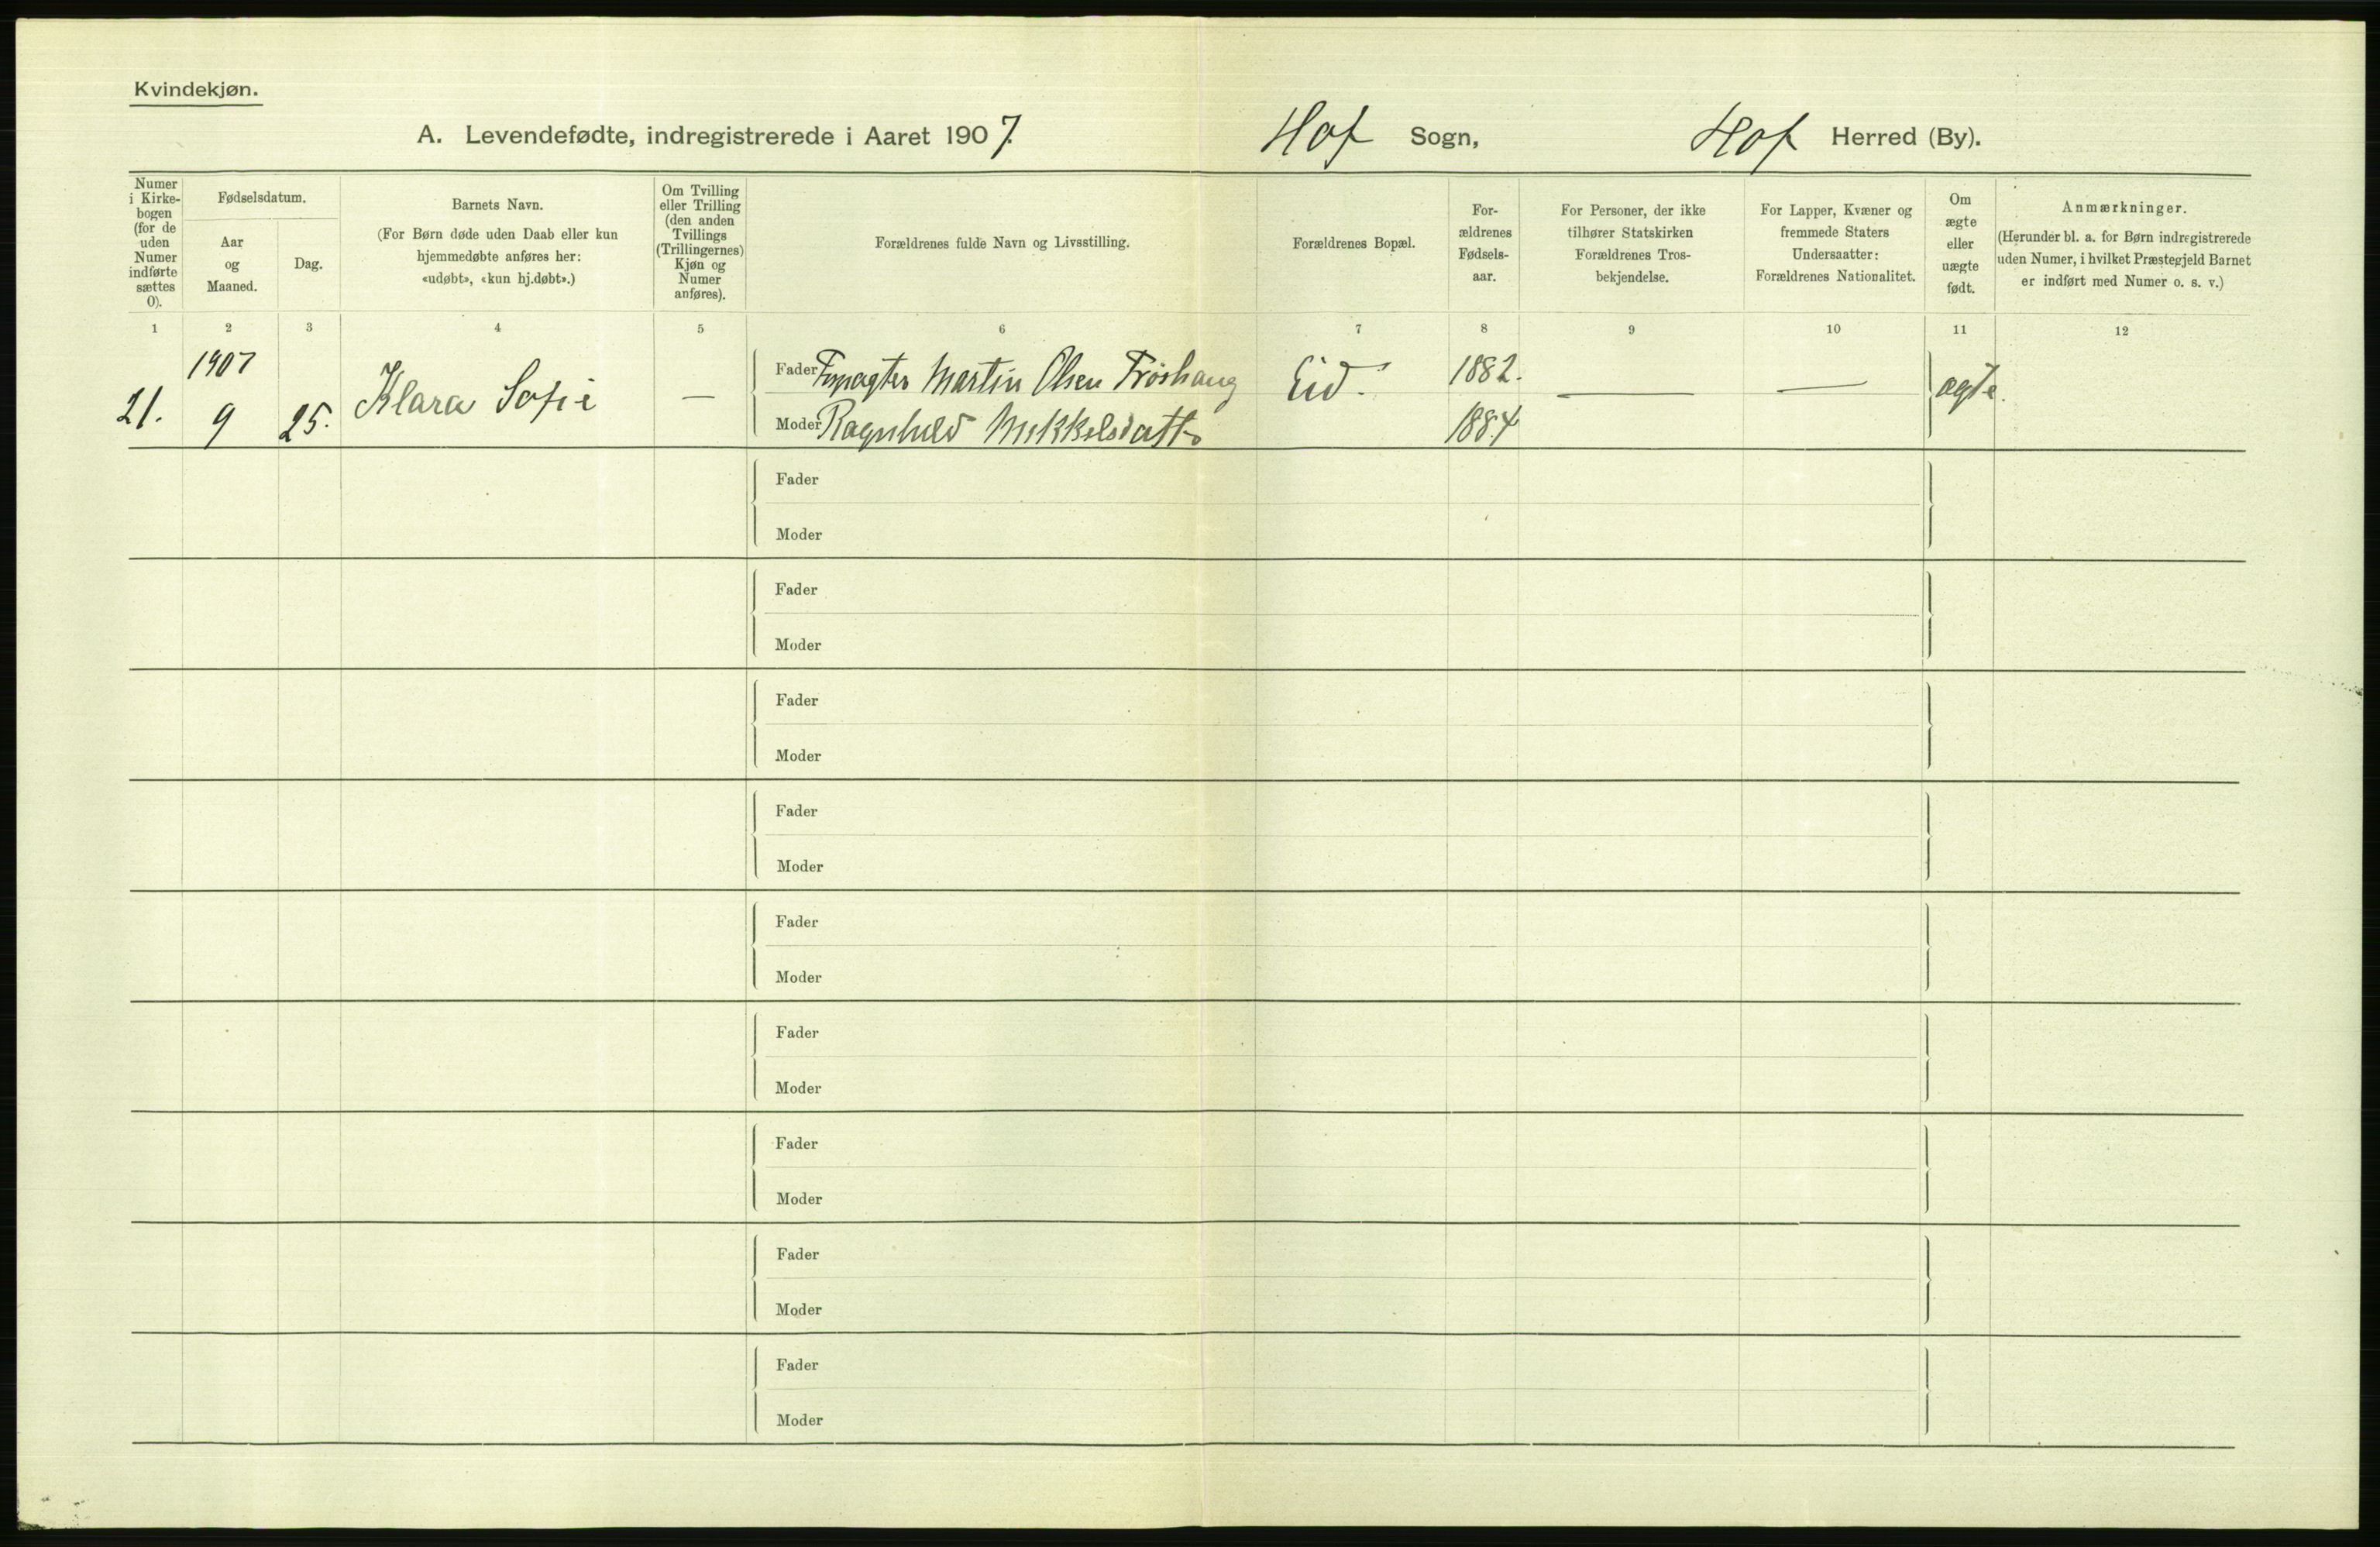 Kvindekjøn.
A. Levendefødte, indregistrerede i Aaret 1907. Hof Sogn, Hof Herred (By).
Numer
i Kirke-
bogen
(for de
uden
Numer
indførte
sættes
0).
Fødselsdatum.
Aar
og
Maaned.
Dag.
Barnets Navn.
(For Børn døde uden Daab eller kun
hjemmedøbte anføres her:
«udøbt», «kun hj.døbt».)
Om Tvilling
eller Trilling
(den anden
Tvillings
(Trillingernes)
Kjøn og
Numer
anføres).
Forældrenes fulde Navn og Livsstilling.
Forældrenes Bopæl.
For-
ældrenes
Fødsels-
aar.
For Personer, der ikke
tilhører Statskirken
Forældrenes Tros-
bekjendelse.
For Lapper, Kvæner og
fremmede Staters
Undersaatter:
Forældrenes Nationalitet.
Om
ægte
eller
uægte
født.
Anmærkninger.
(Herunder bl. a. for Børn indregistrerede
uden Numer, i hvilket Præstegjeld Barnet
er indført med Numer o. s. v.)
1 2 3 4 5 6 7 8 9 10 11 12
1907
21. 9 25. Klara Sofie —
Fader Martin Olsen Frøshaug Eid. 1882. — — ægte.
Moder Ragnhild Mikkelsdatt 1884
Fader
Moder
Fader
Moder
Fader
Moder
Fader
Moder
Fader
Moder
Fader
Moder
Fader
Moder
Fader
Moder
Fader
Moder